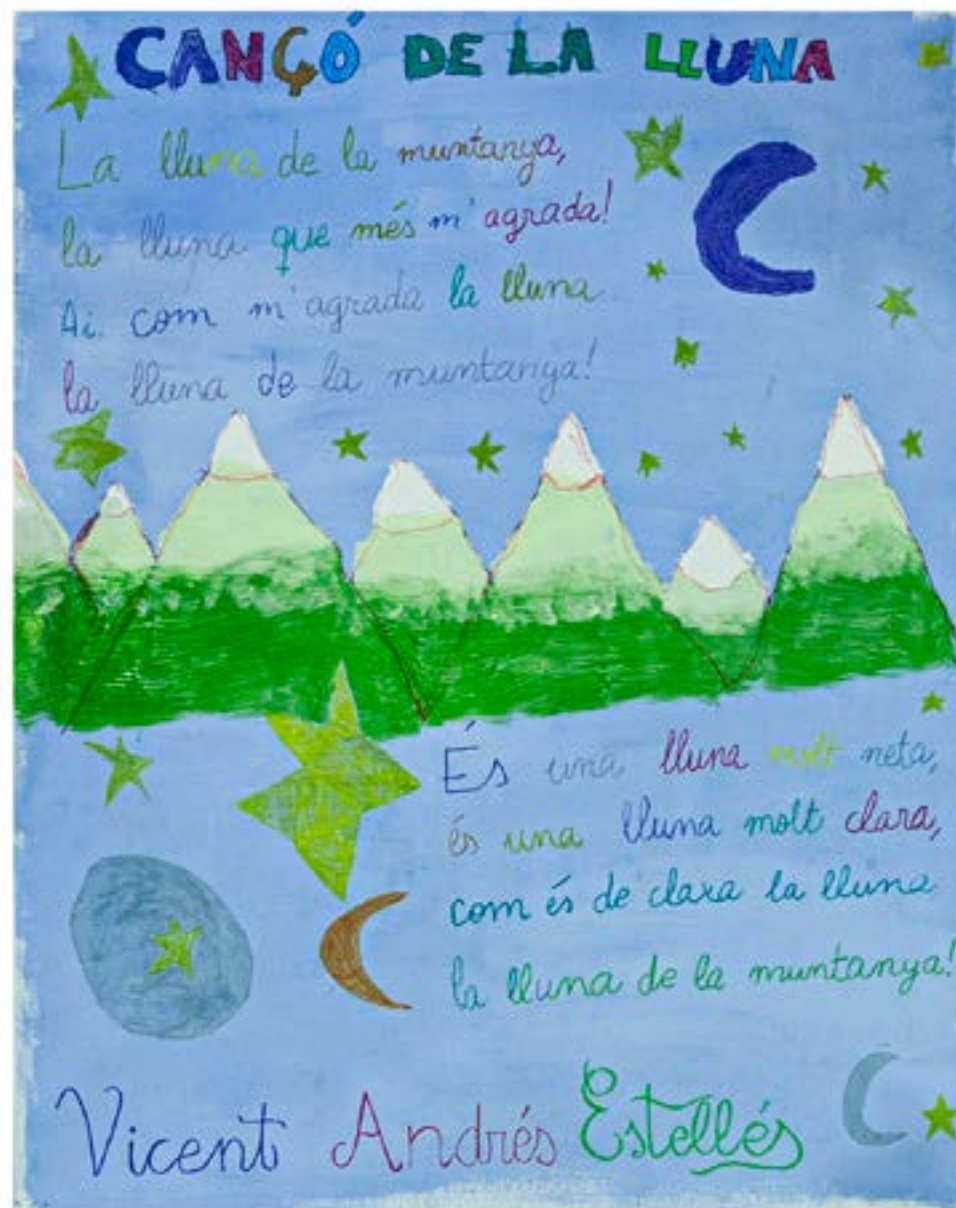 CANÇÓ DE LA LLUNA
La lluna de la muntanya,
la lluna que més m'agrada!
Ai. com m'agrada la lluna
la lluna de la muntanya!
És una lluna molt neta,
és una lluna molt clara,
com és de clara la lluna
la lluna de la muntanya!
Vicent Andrés Estellés